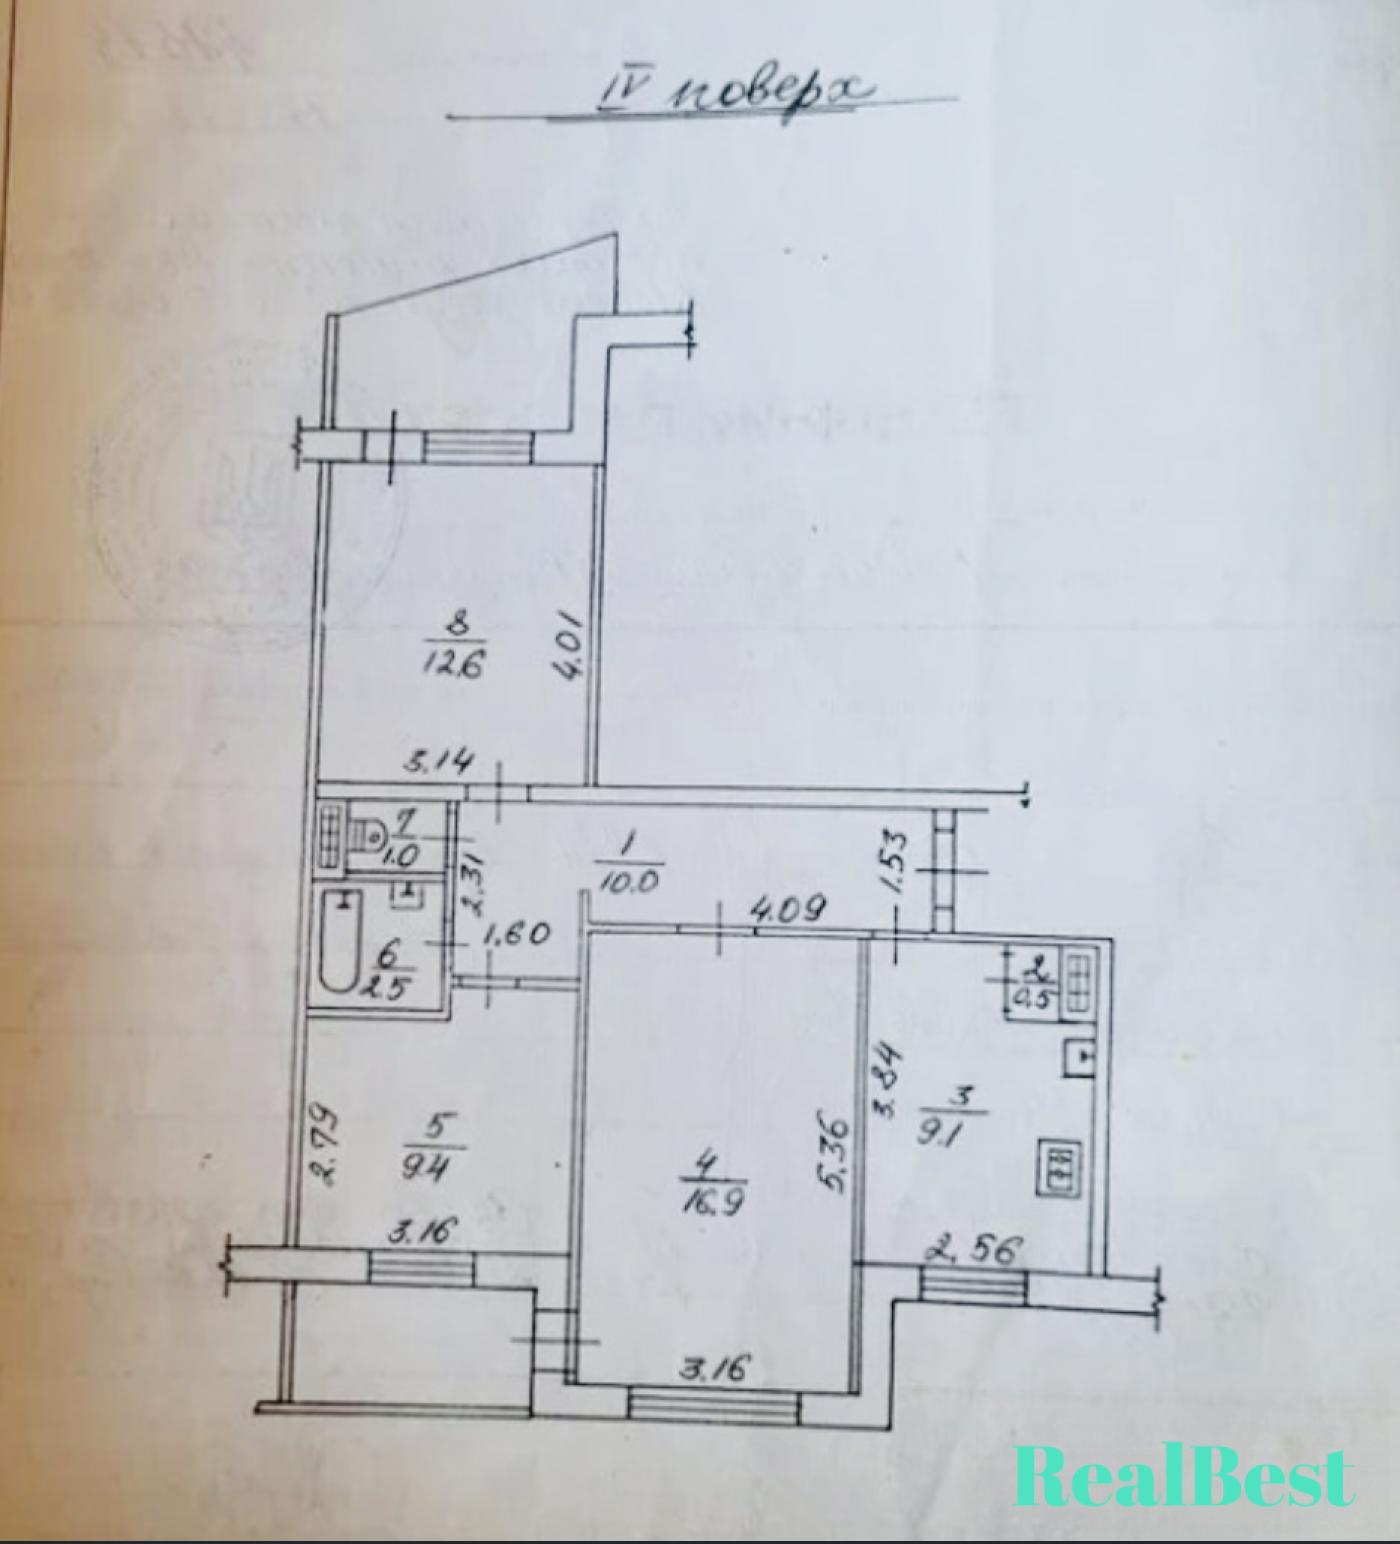 IV поверх
8
12.6
4.01
3.14
7
1.0
2.31
1
10.0
1.53
4.09
1.60
6
2.5
2
0.5
3.84
3
9.1
2.79
5
9.4
5.36
4
16.9
3.16
2.56
3.16
RealBest